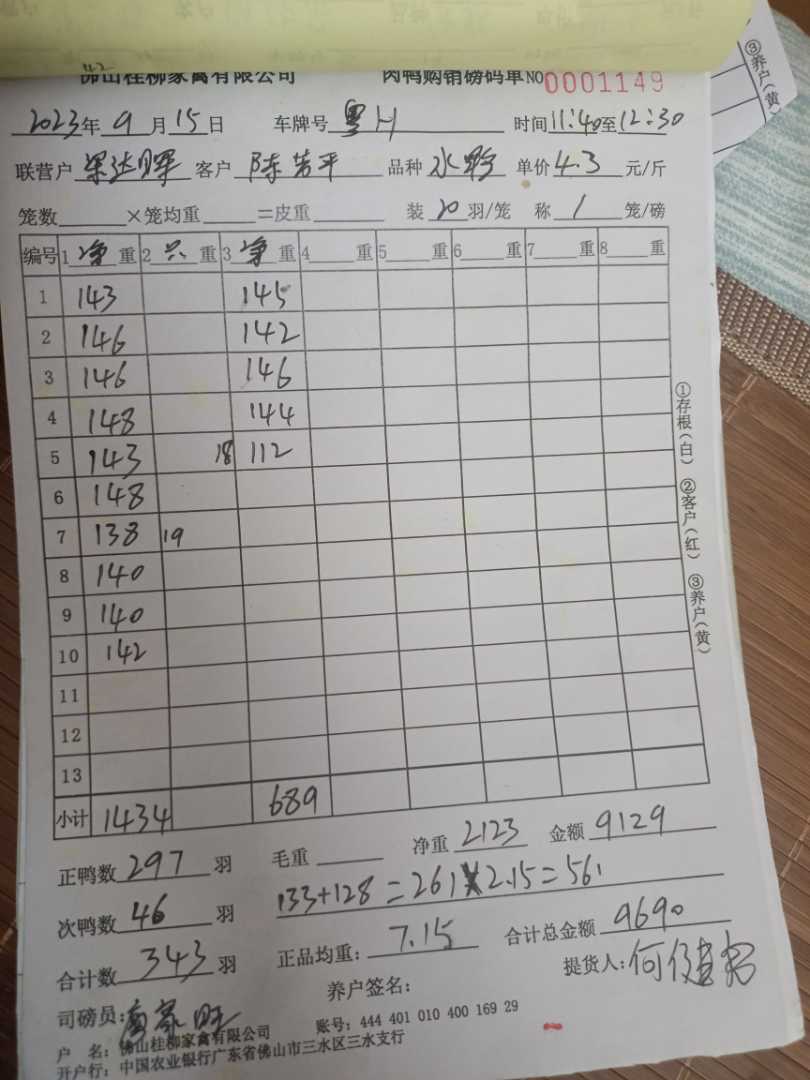 佛山桂柳家禽有限公司 肉鸭购销磅码单 NO 0001149
2023年 9月15日 车牌号 粤H 时间 11:40至12:30
联营户 梁达晖 客户 陈芳平 品种 水鸭 单价 4.3 元/斤
笼数 ×笼均重 =皮重 装 20 羽/笼 称 1 笼/磅
编号 1 净 重 2 只 重 3 净 重 4 重 5 重 6 重 7 重 8 重
1 143 145
2 146 142
3 146 146
4 148 144
5 143 18 112
6 148
7 138 19
8 140
9 140
10 142
11
12
13
小计 1434 689
正鸭数 297 羽 毛重 净重 2123 金额 9129
次鸭数 46 羽 133+128=261×2.15=561
合计数 343 羽 正品均重: 7.15 合计总金额 9690
司磅员: 养户签名: 提货人:
户 名: 佛山桂柳家禽有限公司 账号: 444 401 010 400 169 29
开户行: 中国农业银行广东省佛山市三水区三水支行
①存根(白) ②客户(红) ③养户(黄)
③养户(黄